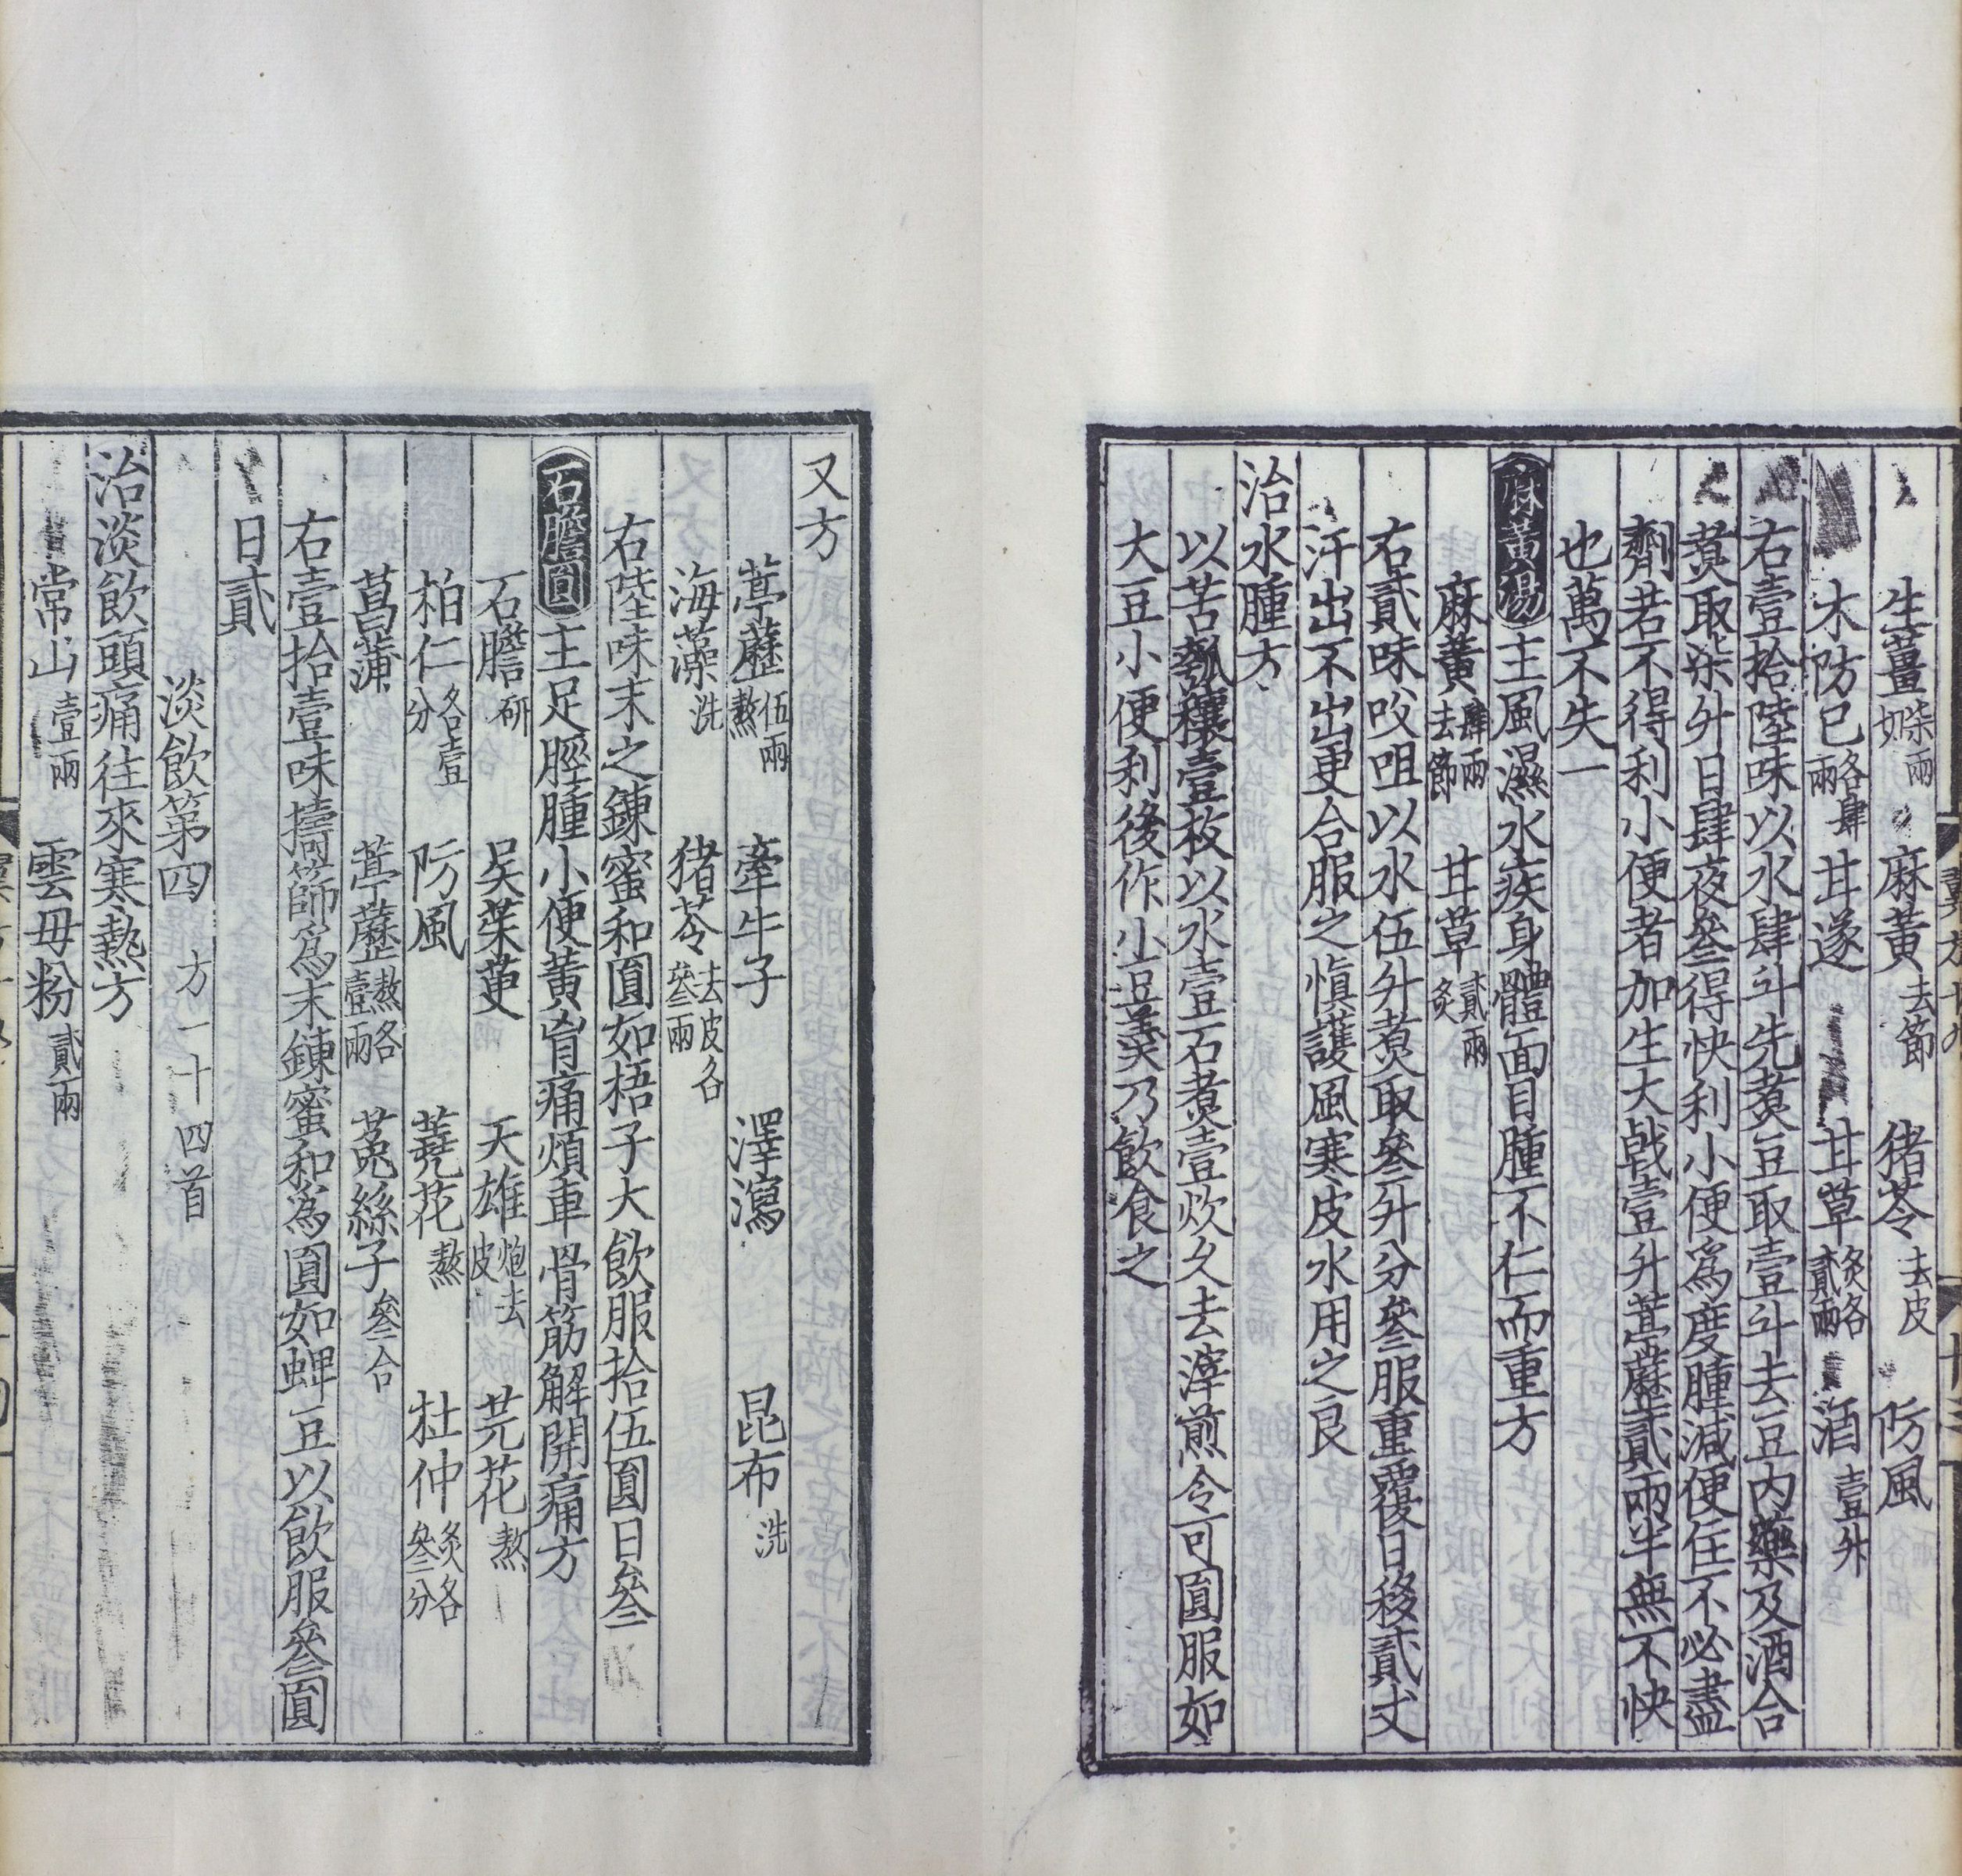 生薑柒兩切 麻黃去節 猪苓去皮 防風
木防己各肆兩 甘遂 甘草炙各貳兩 酒壹升
右壹拾陸味以水肆斗先煑豆取壹斗去豆內藥及酒合
煑取柒升日肆夜叄得快利小便爲度腫減便住不必盡
劑若不得利小便者加生大戟壹升葶藶貳兩半無不快
也萬不失一
麻黃湯主風濕水疾身體面目腫不仁而重方
麻黃肆兩去節 甘草貳兩炙
右貳味㕮咀以水伍升煑取叄升分叄服重覆日移貳丈
汗出不出更合服之愼護風寒皮水用之良
治水腫方
以苦瓠穰壹枚以水壹石煑壹炊久去滓煎令可圓服如
大豆小便利後作小豆羹乃飲食之
又方
葶藶伍兩熬 牽牛子 澤瀉 昆布洗
海藻洗 猪苓去皮各叄兩
右陸味末之鍊蜜和圓如梧子大飲服拾伍圓日叄
石膽圓主足脛腫小便黃胷痛煩車骨筋解開痛方
石膽研 吳茱萸 天雄炮去皮 芫花熬
柏仁各壹分 防風 蕘花熬 杜仲炙各叄分
菖蒲 葶藶熬各壹兩 菟絲子叄合
右壹拾壹味擣篩爲末鍊蜜和爲圓如蜱豆以飲服叄圓
日貳
淡飲第四 方一十四首
治淡飲頭痛往來寒熱方
常山壹兩 雲母粉貳兩